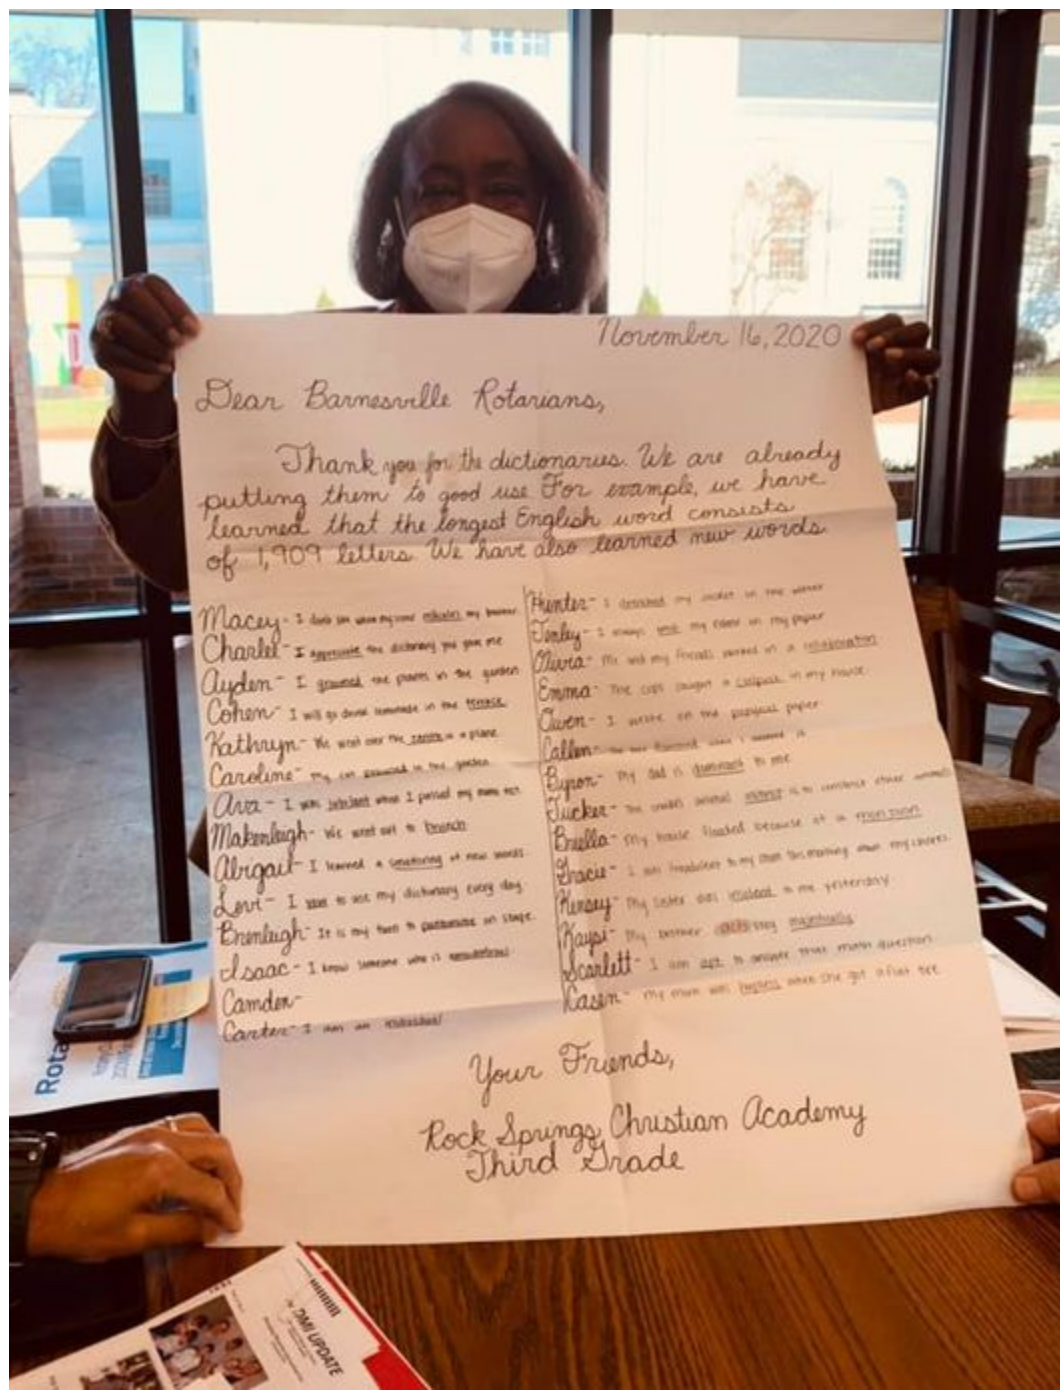 November 16, 2020
Dear Barnesville Rotarians,
Thank you for the dictionaries. We are already
putting them to good use For example, we have
learned that the longest English word consists
of 1,909 letters. We have also learned new words.
Macey- I don't like when my mom my
Charlee- I appreciate the dictionary you gave me
Ayden- I the plants in the garden
Cohen- I will go drink lemonade in the terrace.
Kathryn- We went over the in a plane.
Caroline- My cat in the garden
Ava- I was jubilant when I passed my math test.
Makenleigh- We went out to brunch.
Abigail- I learned a smattering of new words.
Levi- I to use my dictionary every day.
Brenleigh- It is my turn to on stage.
Isaac- I know someone who is
Camden-
Carter- I am an
Hunter- I my jacket in the
Tenley- I always my name on my paper
Olivia- Me and my friends worked in a collaboration.
Emma- The cops caught a culprit in my house.
Owen- I write on the paper
Callen-
Byron- My dad is dominant to me
Tucker- The animal is to other animals.
Briella- My house flooded because of a monsoon.
Gracie- I am to my mom this morning my chores.
Kinsey- My sister was to me yesterday.
Kaysi- My brother acts very
Scarlett- I am apt to answer that math question.
Kasen- My mom was hapless when she got a flat tire
Your Friends,
Rock Springs Christian Academy
Third Grade
Rota
DMI UPDATE